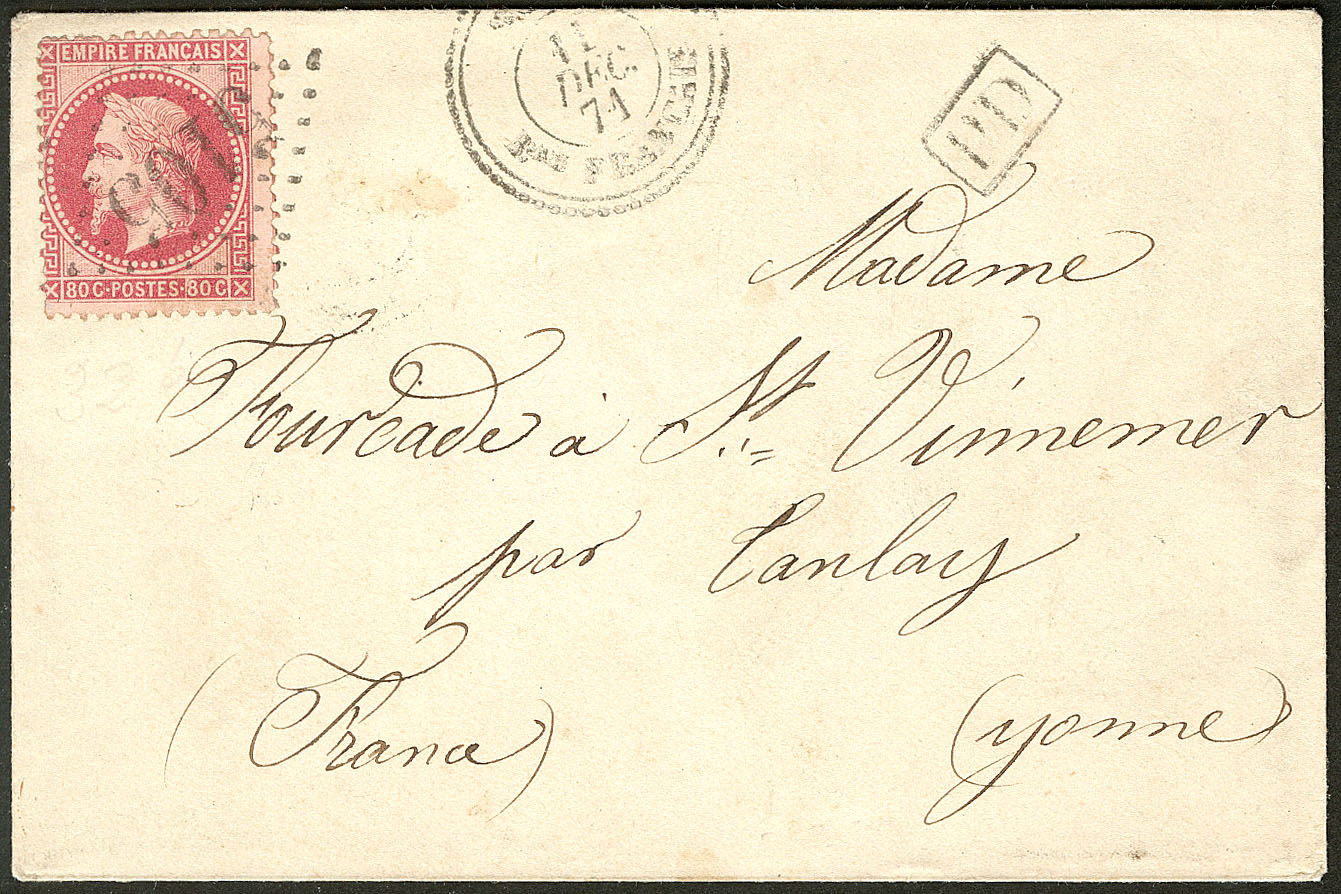 EMPIRE FRANÇAIS
80 C · POSTES · 80 C
11
DEC.
71
Bau FRANCAIS
PD
Madame
Fourcade à St. Vinnemer
par Tanlay
(France) (yonne)